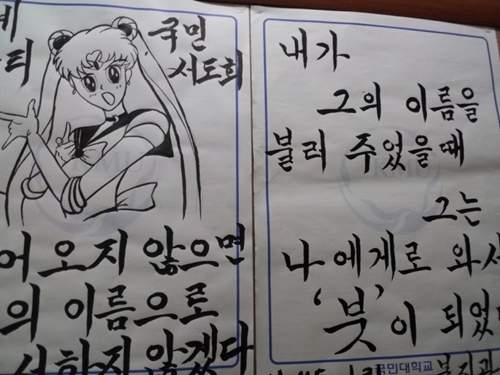 국민
서도회
어 오지 않으면
의 이름으로
서하지 않겠다
내가
그의 이름을
불러 주었을때
그는
나에게로 와서
'붓'이 되었
국민대학교